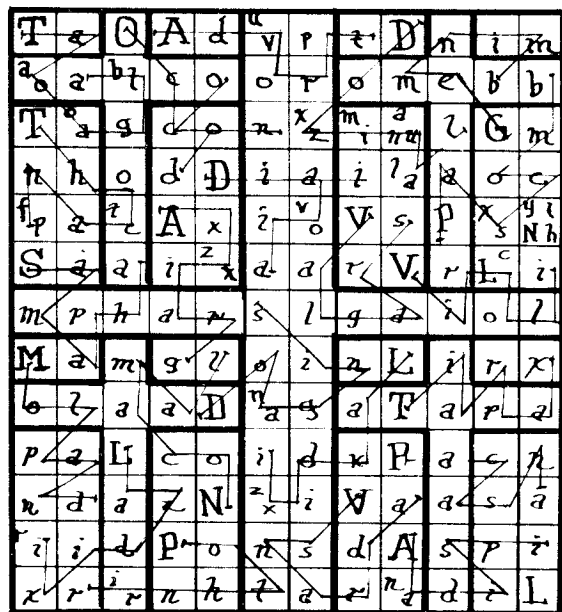 T a Q A d u v p t D n i m
a o a b t c o o r o m e b b
T a g c o n x z m i a n u l G m
n h o d D i a i l a a o c
f p a t c A x i v o V s P x s y i N h
S i a i z x a a r V r L c i
m p h a r s l g a i o l
M a m g l o i n L i r x
o l a a D n a g a T a r a
p a L c o i d x P a c n
n d a z N z x i V a a s a
i i d P o n s d A s p i
x r i r n h t a r n a d i L